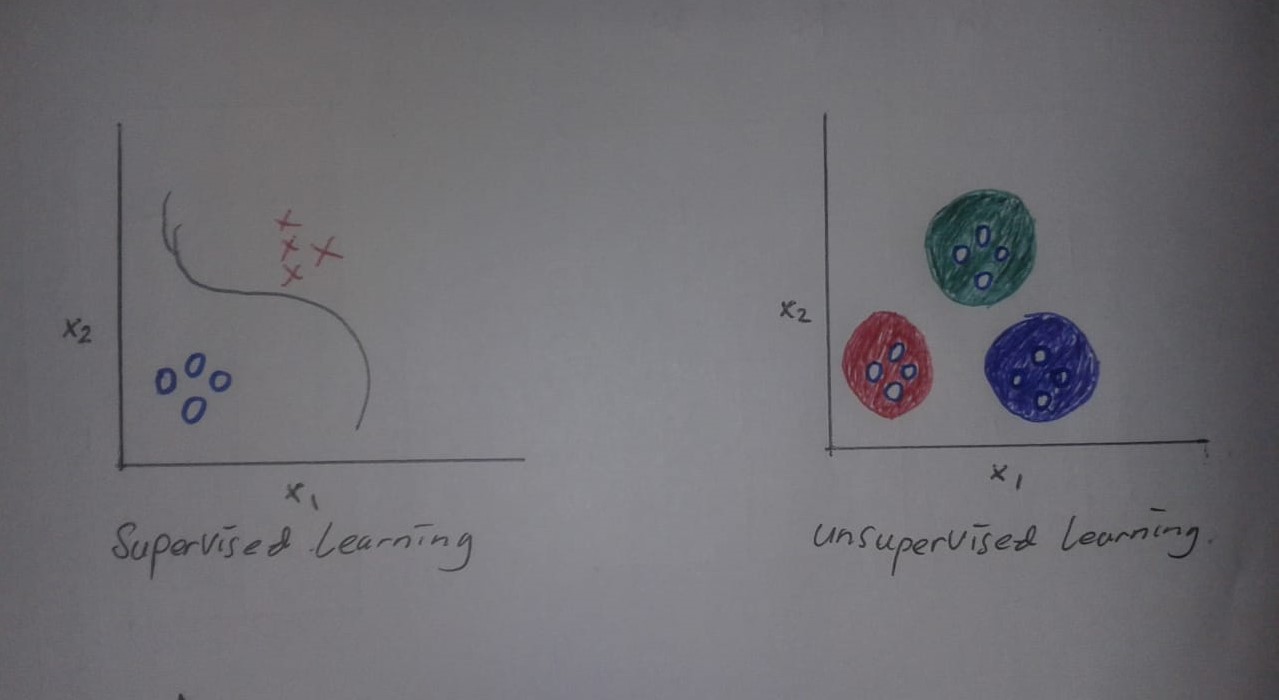 x2
x1
Supervised Learning
x2
x1
unsupervised learning.